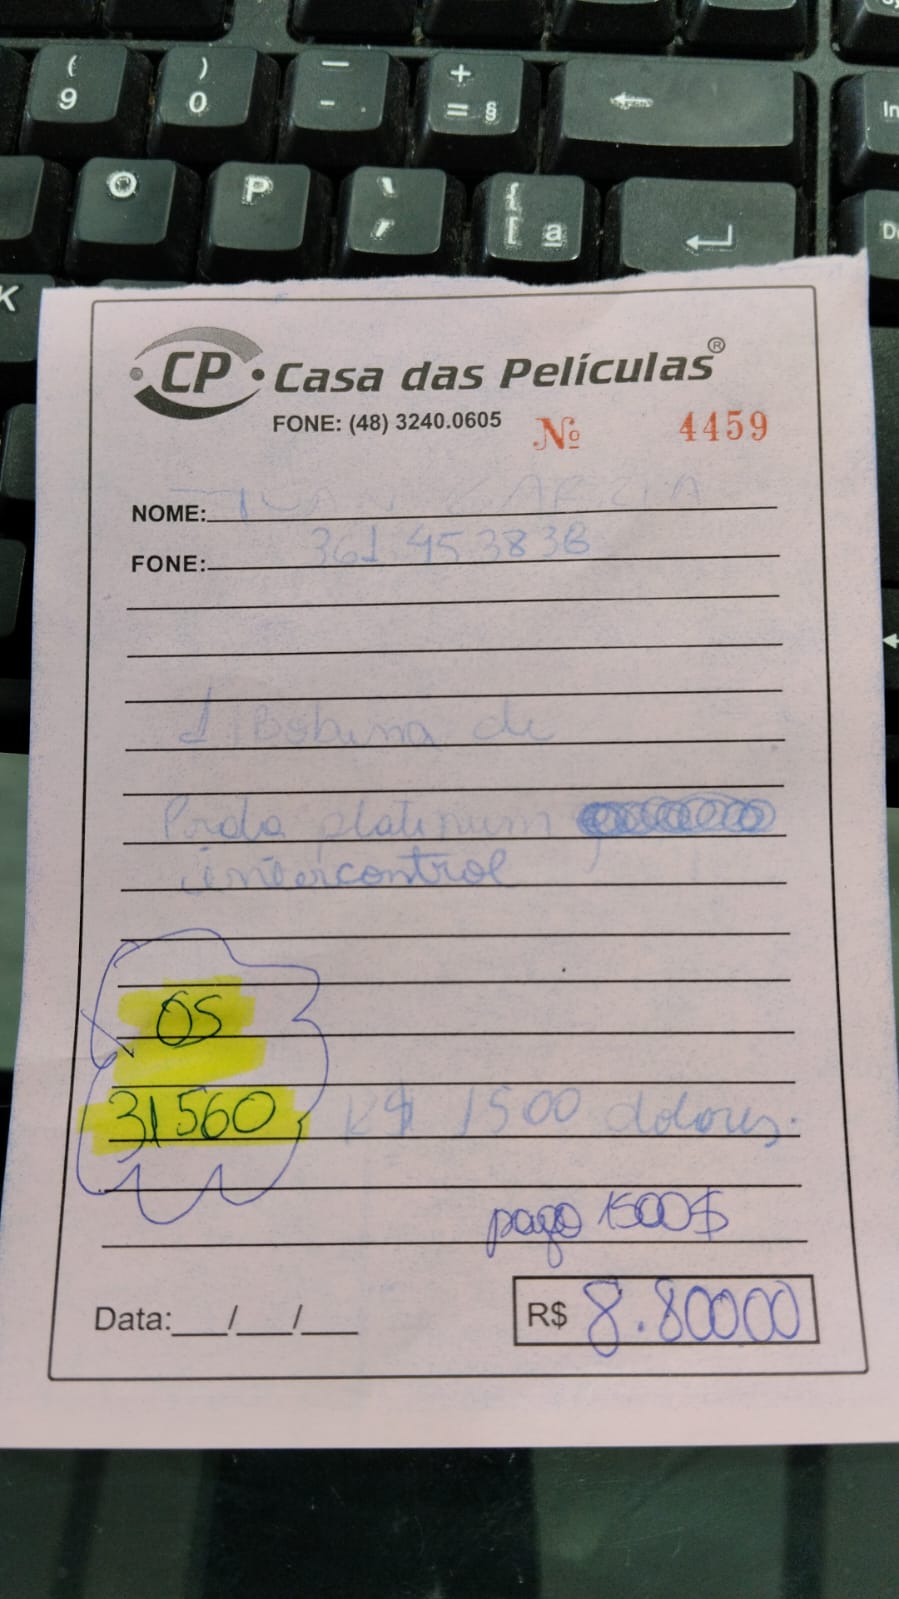 CP Casa das Películas ®
FONE: (48) 3240.0605 Nº 4459
NOME: GARCIA
FONE: 361 45 3838
1 Bobina de
platinum
control
OS
31560 R$ 1500 dolores.
pago 1500$
Data:___/___/___ R$ 8.80000
( 9 ) 0 — - + = §
O P ` ´ { [ ª
K